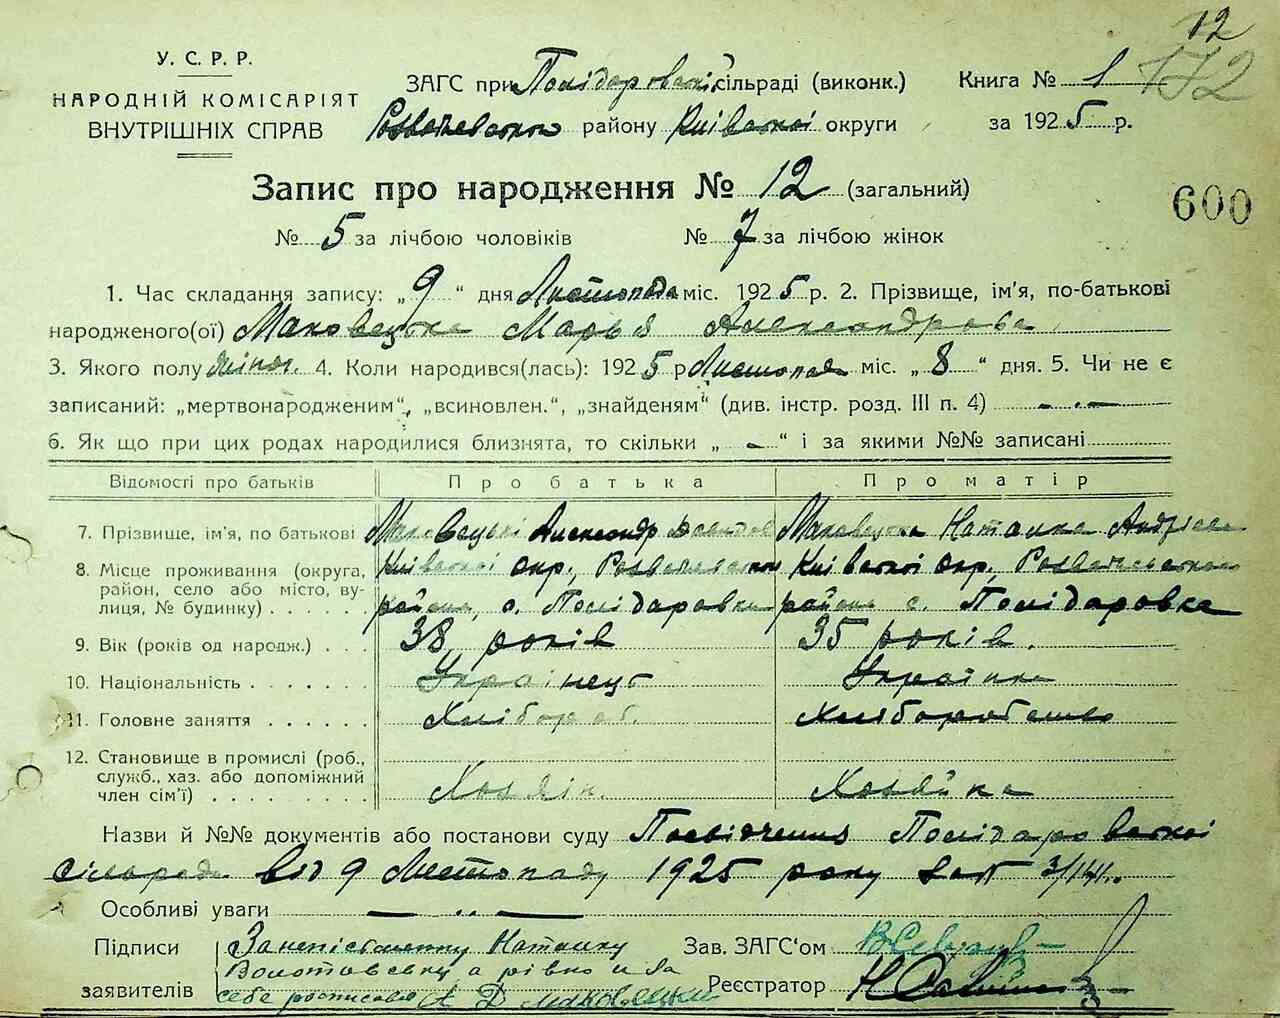 12
172
У. С. Р. Р.
НАРОДНІЙ КОМІСАРІЯТ
ВНУТРІШНІХ СПРАВ
ЗАГС при Полідаровській сільраді (виконк.)
Книга № 1
району Київської округи
за 1925 р.
Запис про народження № 12 (загальний)
600
№ 5 за лічбою чоловіків № 7 за лічбою жінок
1. Час складання запису: „ 9 “ дня Листопада міс. 1925 р. 2. Прізвище, ім'я, по-батькові
народженого(ої) Маковецька Марья Александрова
3. Якого полу жіноч. 4. Коли народився(лась): 1925 р Листопада міс. „ 8 “ дня. 5. Чи не є
записаний: „мертвонародженим“, „всиновлен.“, „знайденям“ (див. інстр. розд. III п. 4)
6. Як що при цих родах народилися близнята, то скільки „ - “ і за якими №№ записані
Відомості про батьків Про батька Про матір
7. Прізвище, ім'я, по батькові Маковецькі Александр Маковецька Наталка Андріева
8. Місце проживання (округа, Київської окр., Київської окр.,
район, село або місто, ву-
лиця, № будинку) района, с. Полідаровки района с. Полідаровка
9. Вік (років од народж.) 38 років 35 років.
10. Національність Українець Українка
11. Головне заняття Хлібороб. Хліборобство
12. Становище в промислі (роб.,
служб., хаз. або допоміжний
член сім'ї) Хозяїн. Хозяйка
Назви й №№ документів або постанови суду Посвідчення Полідаровської
сільради від 9 Листопаду 1925 року
Особливі уваги
Підписи Наталку Зав. ЗАГС'ом
а рівно и за
заявителів себе росписався А Д Маковецький Реєстратор